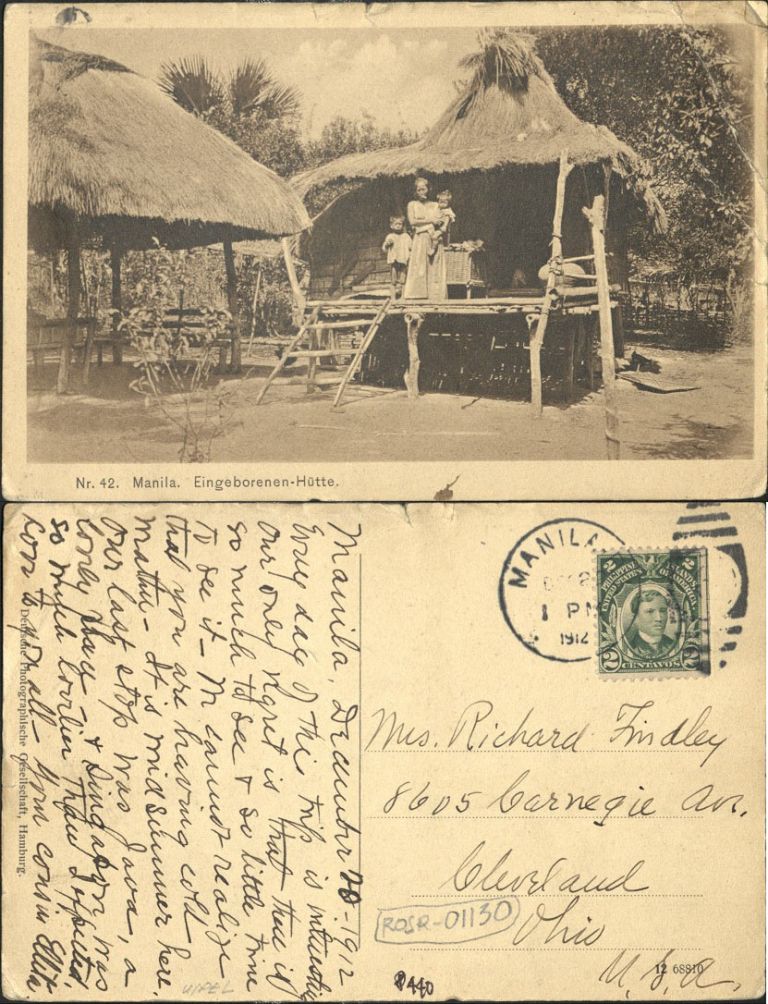 Nr. 42. Manila. Eingeborenen-Hütte.
Manila, December 28-1912
Every day of this trip is interesting
our only regret is that there is
so much to see & so little time
to see it - M cannot realize
that you are having cold
weather - It is midsummer here.
Our last stop was Java, a
lovely place - & Singapore was
so much lovelier than I expected
Love to you all - Your cousin
Deutsche Photographische Gesellschaft, Hamburg.
MANILA
1 PM
1912
PHILIPPINE ISLANDS
UNITED STATES OF AMERICA
2 CENTAVOS 2
Mrs. Richard Findley
8605 Carnegie Av.
Cleveland
Ohio
U.S.A.
ROSR-01130
12 68810